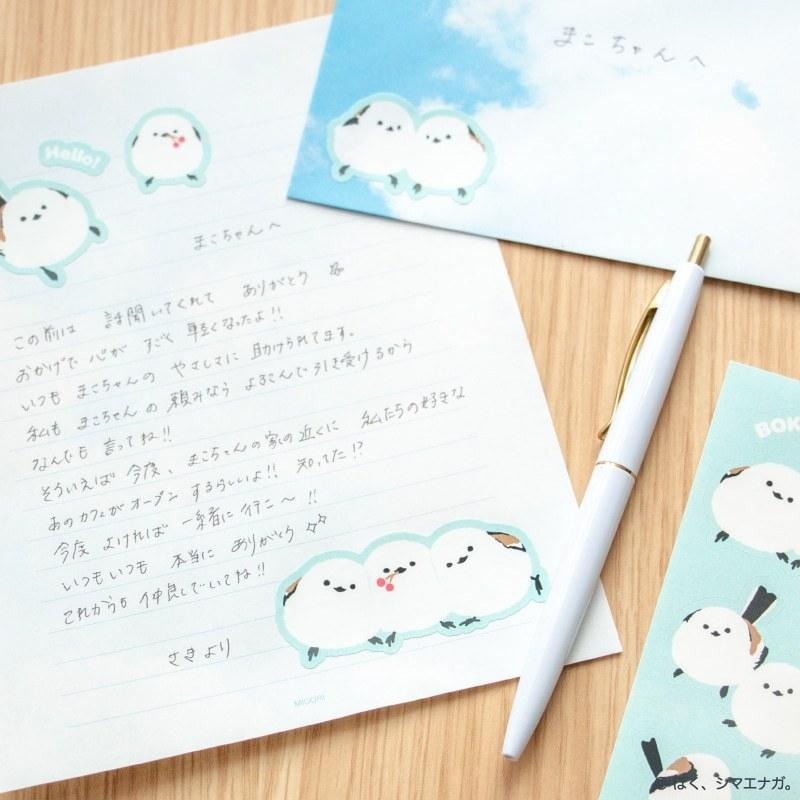 まこちゃんへ
Hello!
まこちゃんへ
この前は 話聞いてくれて ありがとう
おかげで 心が すごく 軽くなったよ!!
いつも まこちゃんの やさしさに 助けられてます。
私も まこちゃんの 頼みなら よろこんで 引き受けるから
なんでも 言ってね!!
そういえば 今度、まこちゃんの家の近くに 私たちの好きな
あのカフェが オープン するらしいよ!! 知ってた!?
今度 よければ 一緒に 行こ〜!!
いつもいつも 本当に ありがとう
これからも 仲良しでいてね!!
さきより
MIDORI
BOK
©ぼく、シマエナガ。